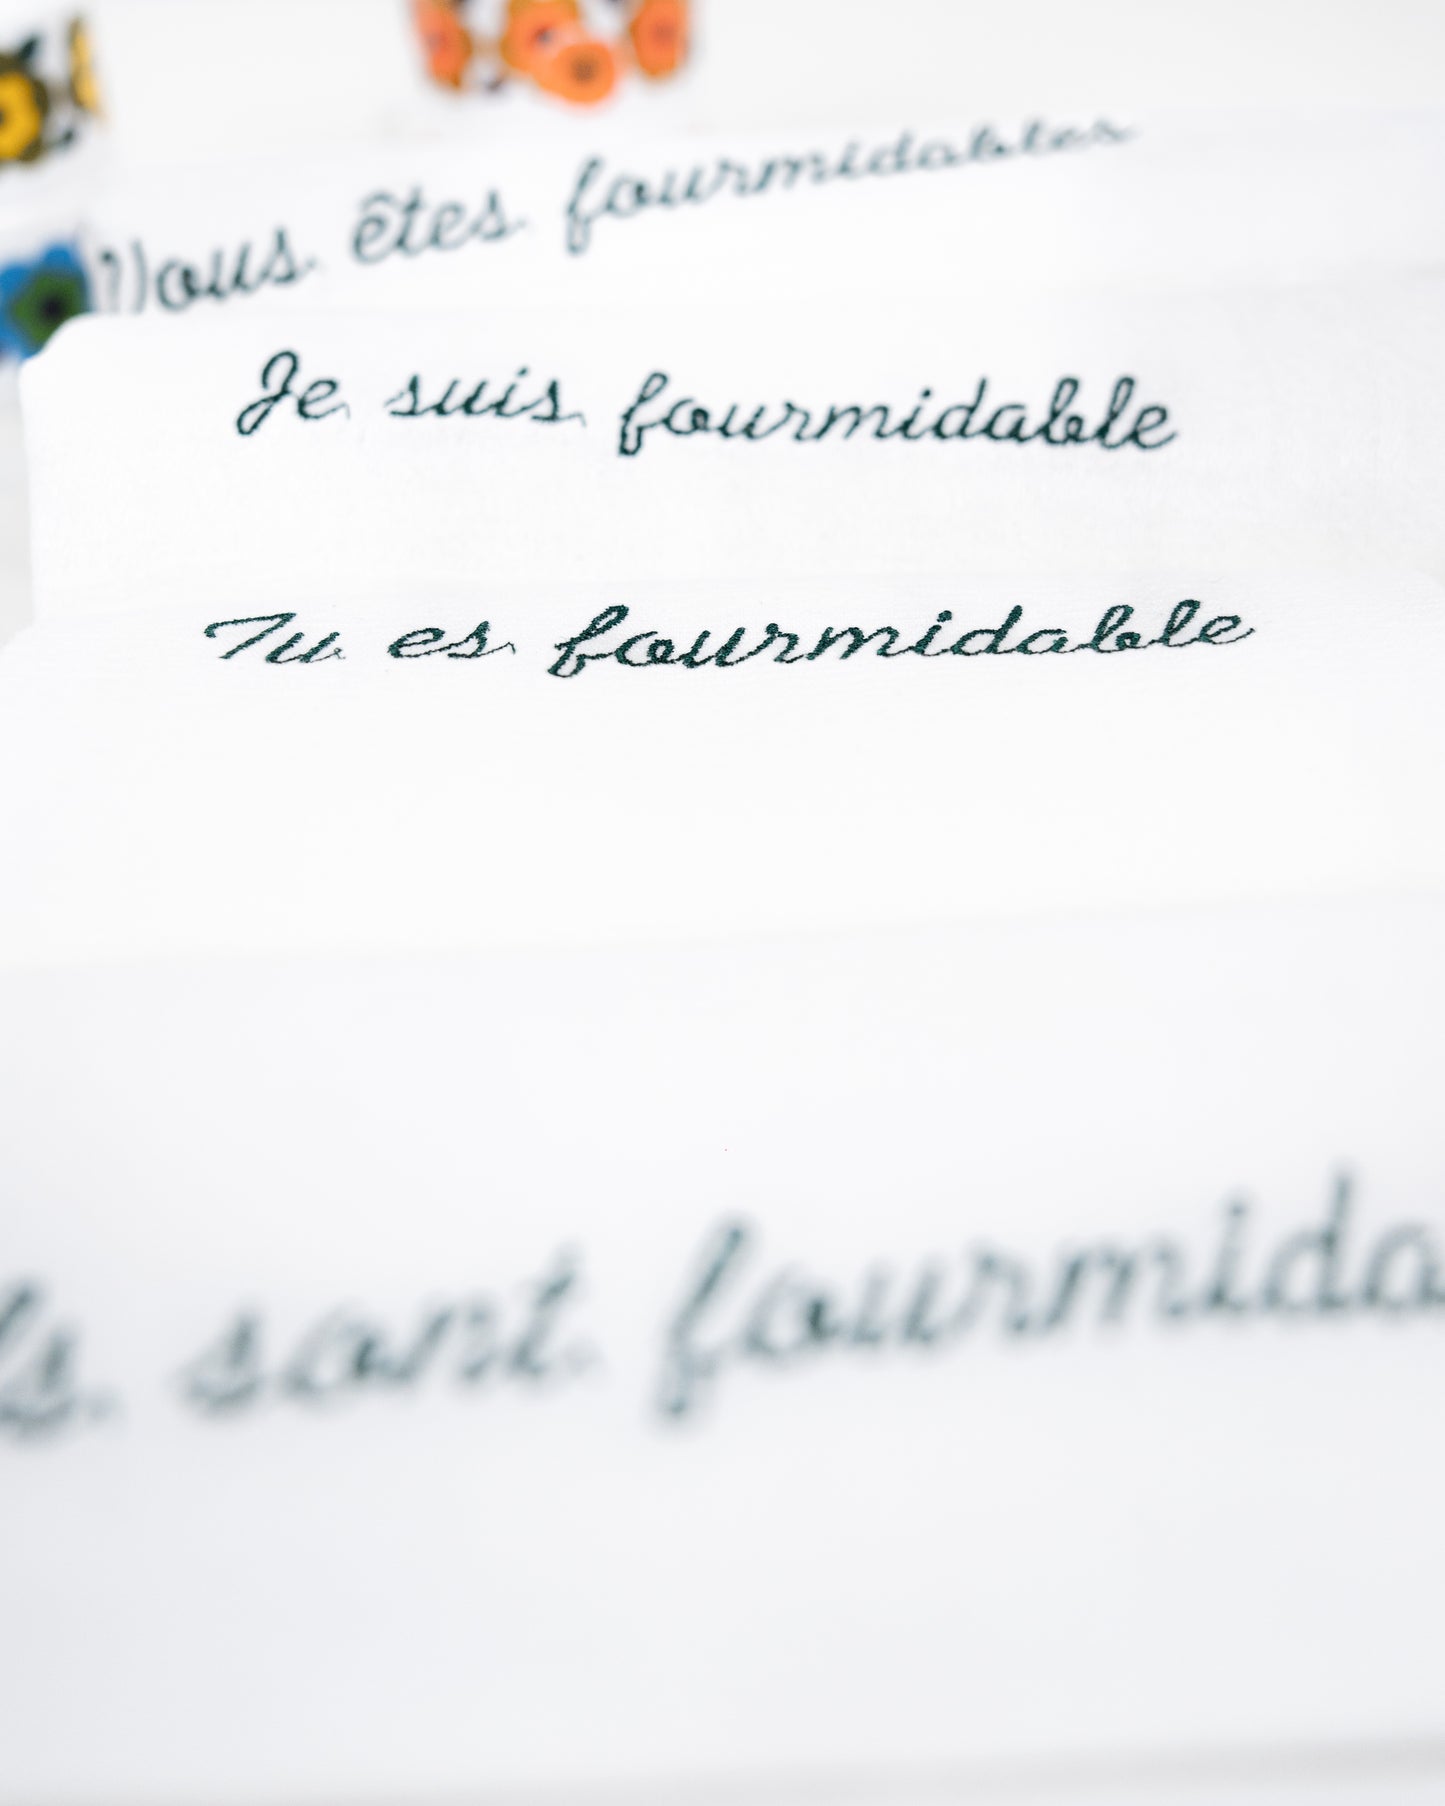 Vous êtes fourmidables
Je suis fourmidable
Tu es fourmidable
sont